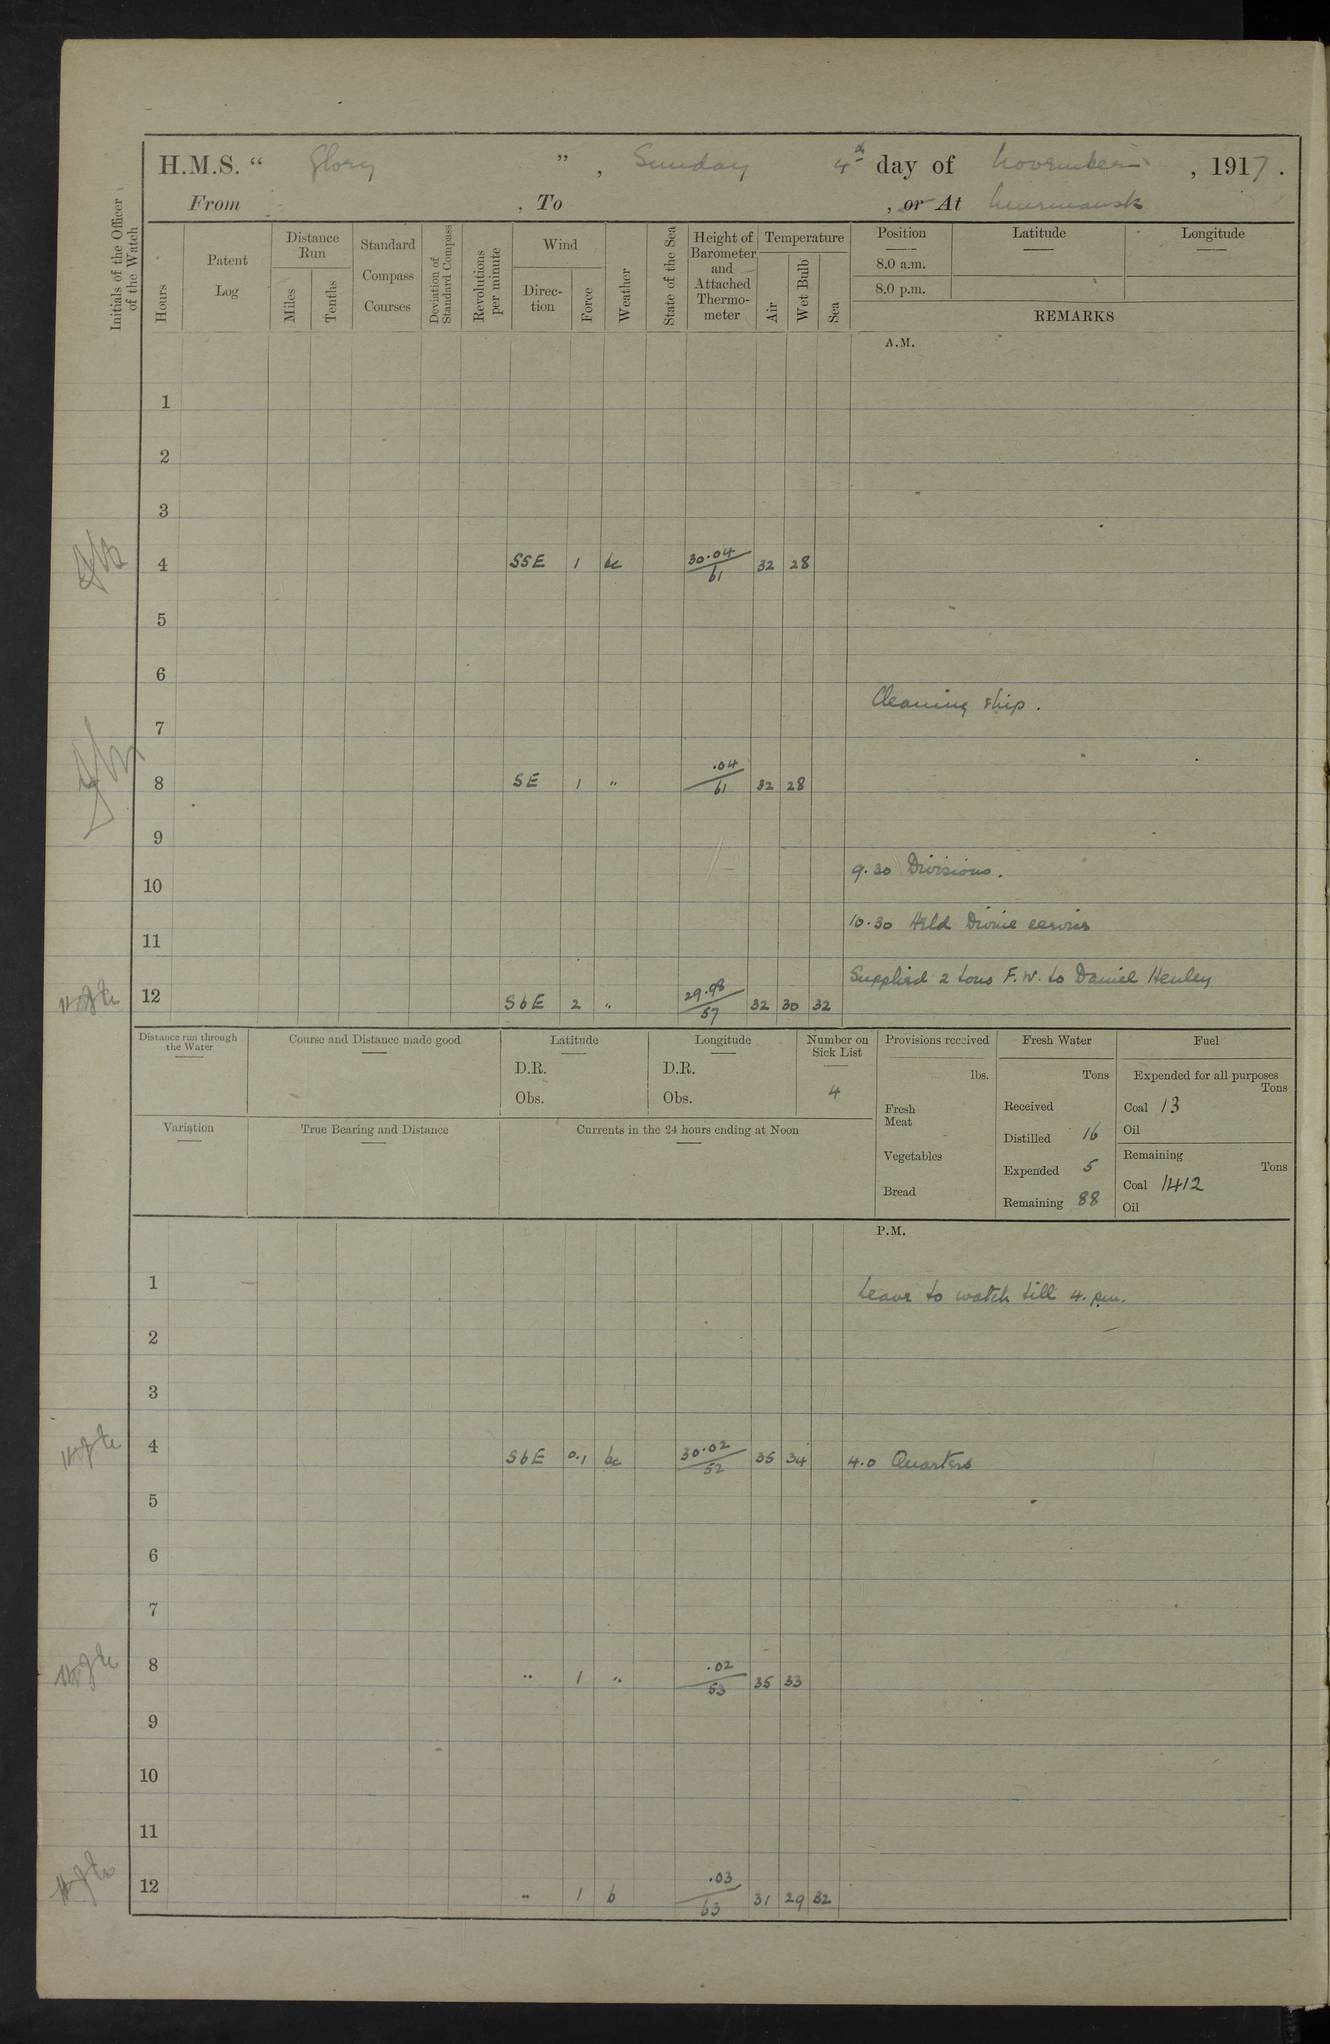 H.M.S. “ Glory ”, Sunday 4th day of November, 1917.
From , To , or At Murmansk
Initials of the Officer of the Watch
Hours
Patent Log
Distance Run
Miles
Tenths
Standard Compass Courses
Deviation of Standard Compass
Revolutions per minute
Wind
Direc-tion
Force
Weather
State of the Sea
Height of Barometer and Attached Thermo-meter
Temperature
Air
Wet Bulb
Sea
Position
8.0 a.m.
8.0 p.m.
Latitude
Longitude
REMARKS
A.M.
1
2
3
4 SSE 1 bc 30.04/61 32 28
5
6
Cleaning ship.
7
8 SE 1 " .04/61 32 28
9
9.30 Divisions.
10
10.30 Held Divine service
11
Supplied 2 tons F.W. to Daniel Henley
12 SbE 2 " 29.98/57 32 30 32
Distance run through the Water
Course and Distance made good
Latitude
D.R.
Obs.
Longitude
D.R.
Obs.
Number on Sick List
4
Provisions received
lbs.
Fresh Meat
Vegetables
Bread
Fresh Water
Tons
Received
Distilled 16
Expended 5
Remaining 88
Fuel
Expended for all purposes
Tons
Coal 13
Oil
Remaining
Tons
Coal 1412
Oil
Variation
True Bearing and Distance
Currents in the 24 hours ending at Noon
P.M.
1 Leave to watch till 4. pm.
2
3
4 SbE 0.1 bc 30.02/52 35 34 4.0 Quarters
5
6
7
8 " 1 " .02/53 35 33
9
10
11
12 " 1 b .03/63 31 29 32